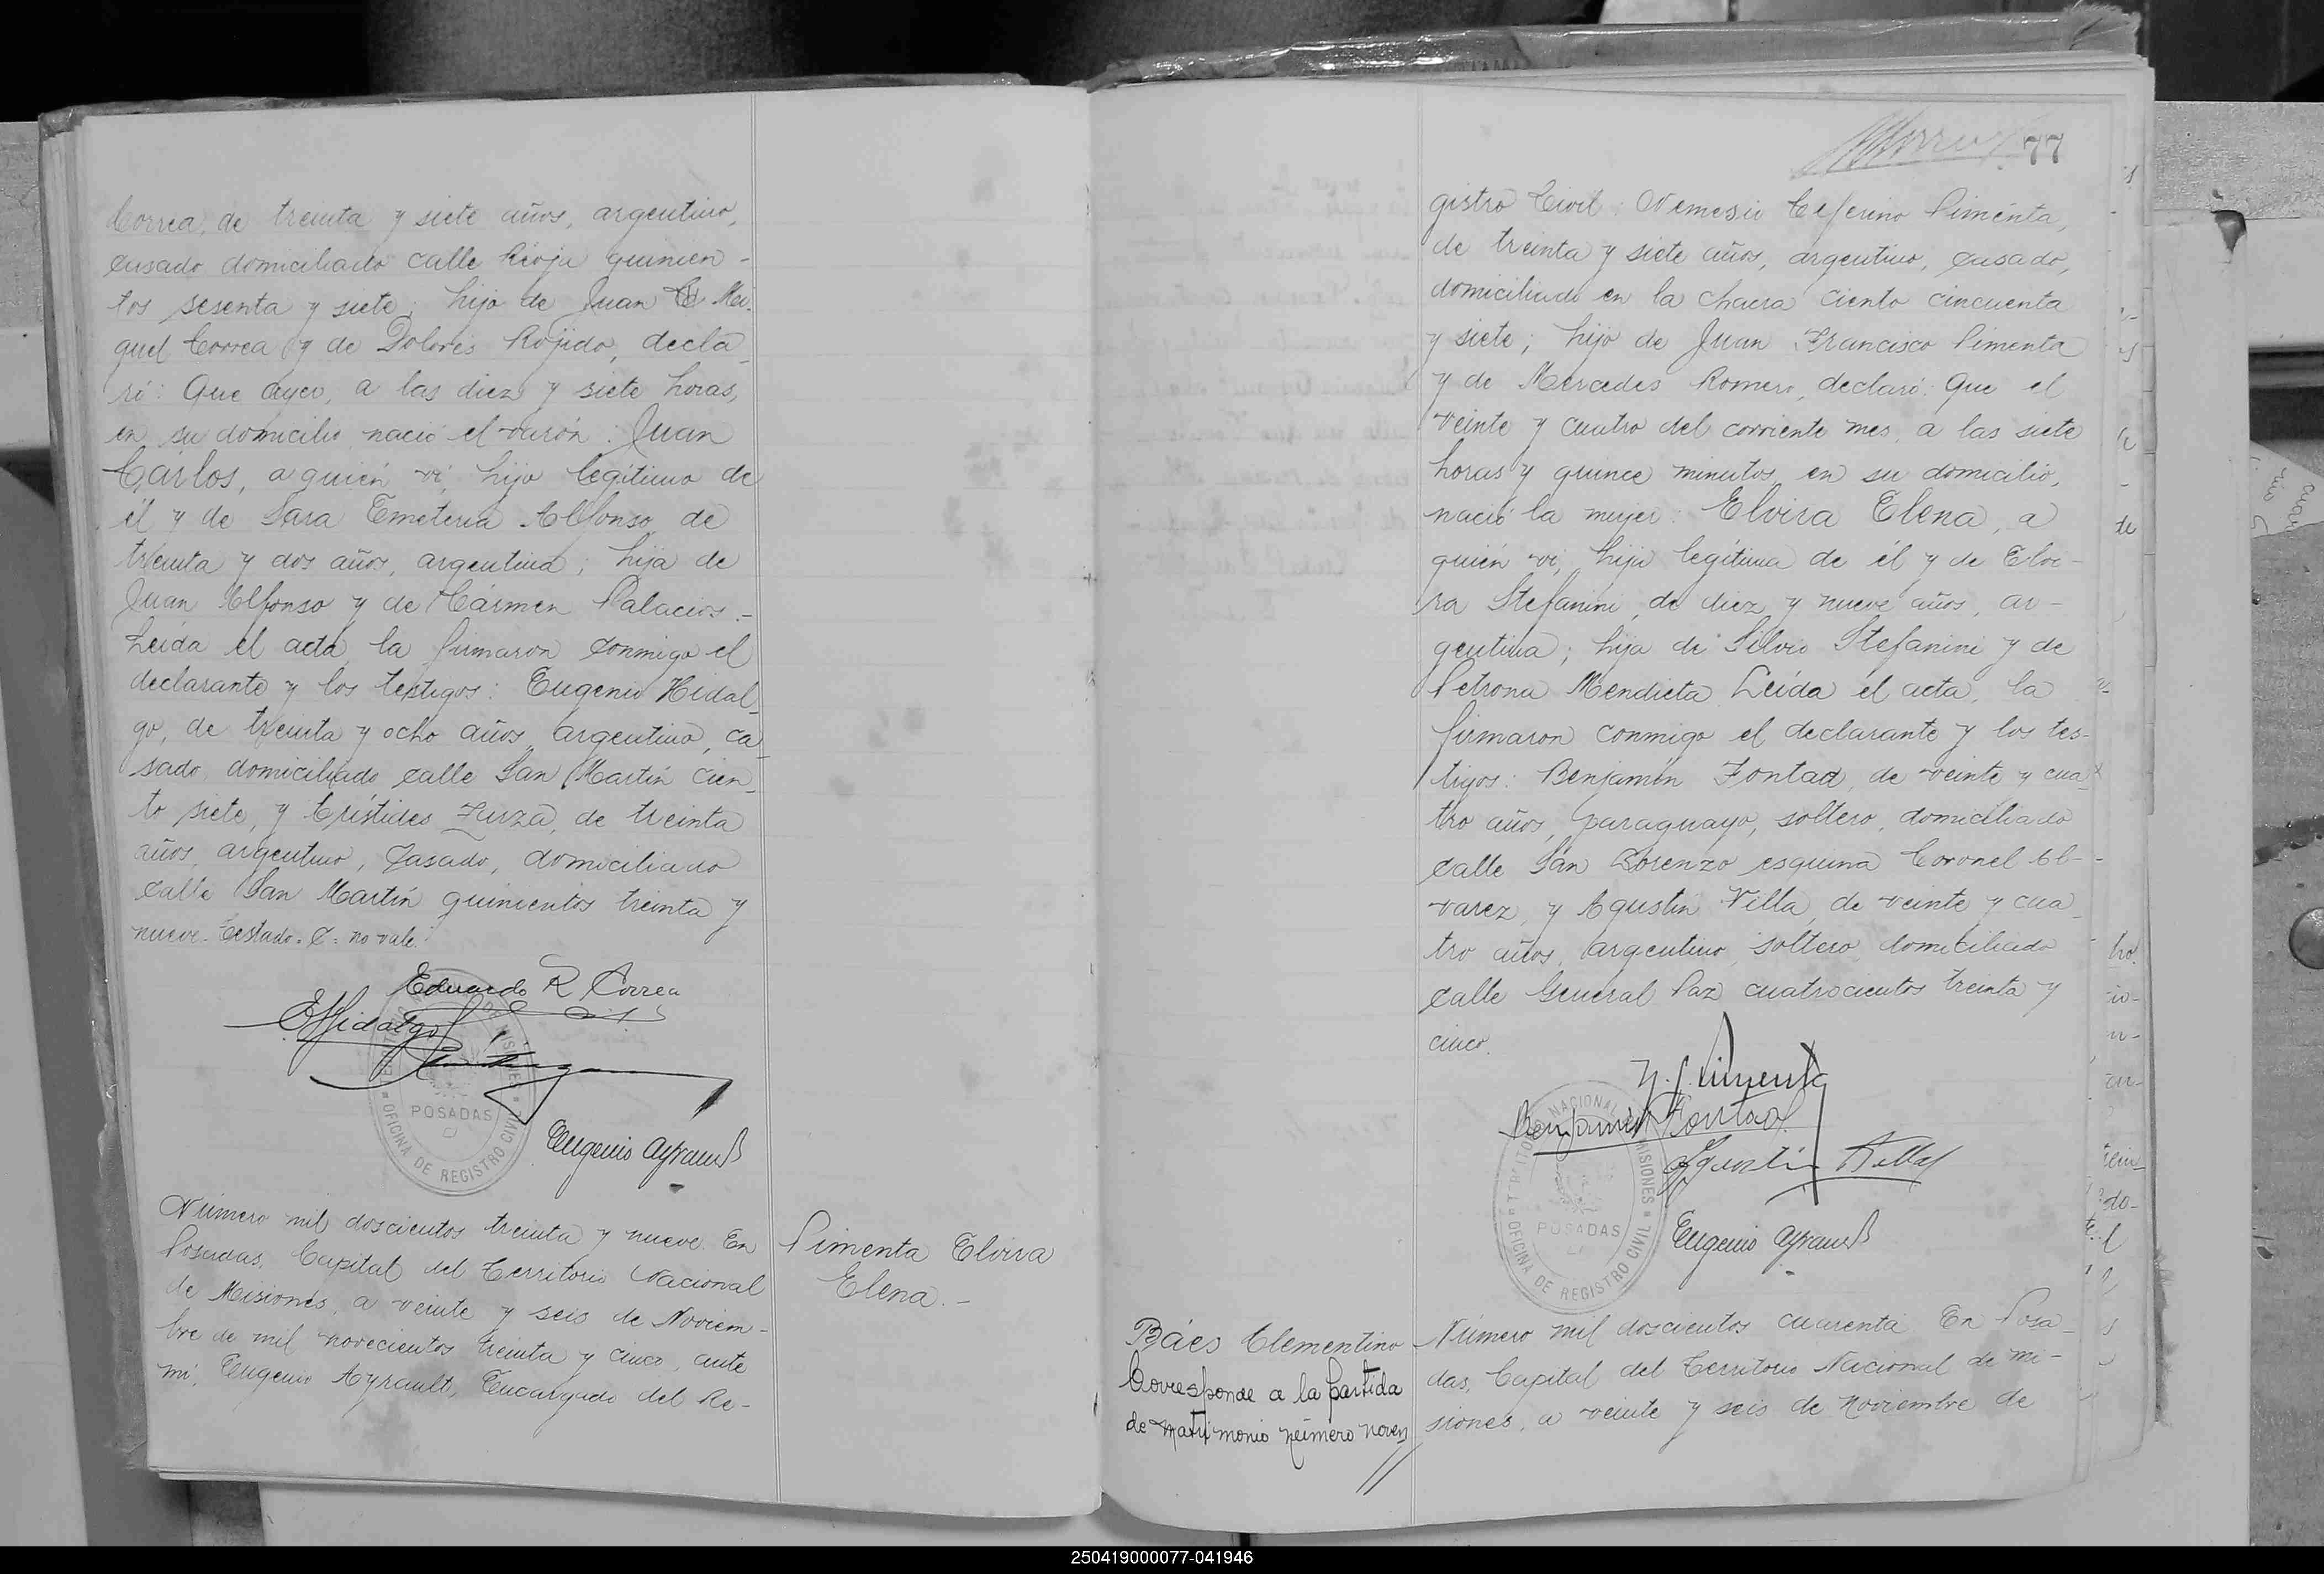 Correa, de treinta y siete años, argentino,
casado, domiciliado calle Rioja quinien-
tos sesenta y siete; hijo de Juan C Mi-
guel Correa y de Dolores Rojido, decla-
ró: Que ayer, a las diez y siete horas,
en su domicilio nació el varón: Juan
Cárlos, a quién vi, hijo legítimo de
él y de Sara Emeteria Alfonso, de
treinta y dos años, argentina; hija de
Juan Alfonso y de Cármen Palacios.-
Leída el acta, la firmaron conmigo el
declarante y los testigos: Eugenio Hidal-
go, de treinta y ocho años, argentino, ca-
sado, domiciliado calle San Martín cien-
to siete, y Arístides Zarza, de treinta
años, argentino, casado, domiciliado
calle San Martín quinientos treinta y
nueve. Testado. C: no vale.
Eduardo R Correa
EHidalgo
POSADAS
OFICINA DE REGISTRO CIVIL
Eugenio Ayrault
Número mil doscientos treinta y nueve. En
Posadas, Capital del Territorio Nacional
de Misiones, a veinte y seis de Noviem-
bre de mil novecientos treinta y cinco, ante
mí, Eugenio Ayrault, Encargado del Re-
Pimenta Elvira
Elena.-
77
gistro Civil: Nemesio Ceferino Pimenta,
de treinta y siete años, argentino, casado,
domiciliado en la chacra ciento cincuenta
y siete; hijo de Juan Francisco Pimenta
y de Mercedes Romero, declaró: Que el
veinte y cuatro del corriente mes, a las siete
horas y quince minutos, en su domicilio,
nació la mujer: Elvira Elena, a
quién vi, hija legítima de él y de Elvi-
ra Stefanini, de diez y nueve años, ar-
gentina; hija de Silvio Stefanini y de
Petrona Mendieta. Leída el acta, la
firmaron conmigo el declarante y los tes-
tigos: Benjamín Fontao, de veinte y cua-
tro años, paraguayo, soltero, domiciliado
calle San Lorenzo esquina Coronel Al-
varez, y Agustín Villa, de veinte y cua-
tro años, argentino, soltero, domiciliado
calle General Paz cuatrocientos treinta y
cinco.
N. C. Pimenta
Benjamin Fontao
Agustín Villa
TERRITORIO NACIONAL MISIONES
POSADAS
OFICINA DE REGISTRO CIVIL
Eugenio Ayrault
Báes Clementino
Corresponde a la partida
de matrimonio número noven
Número mil doscientos cuarenta. En Posa-
das, Capital del Territorio Nacional de Mi-
siones, a veinte y seis de Noviembre de
250419000077-041946